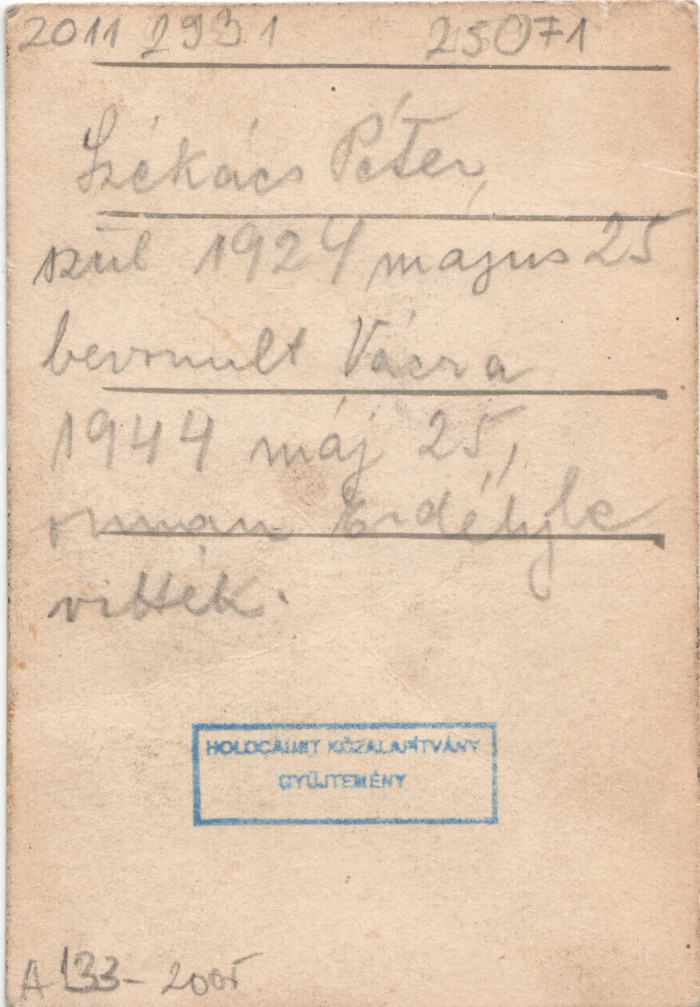 2011 2931 25071
Székács Péter,
szül 1924 május 25
bevonult Vácra
1944 máj 25,
onnan Erdélybe
vitték.
HOLOCAUST KÖZALAPÍTVÁNY
GYŰJTEMÉNY
A 133-2005